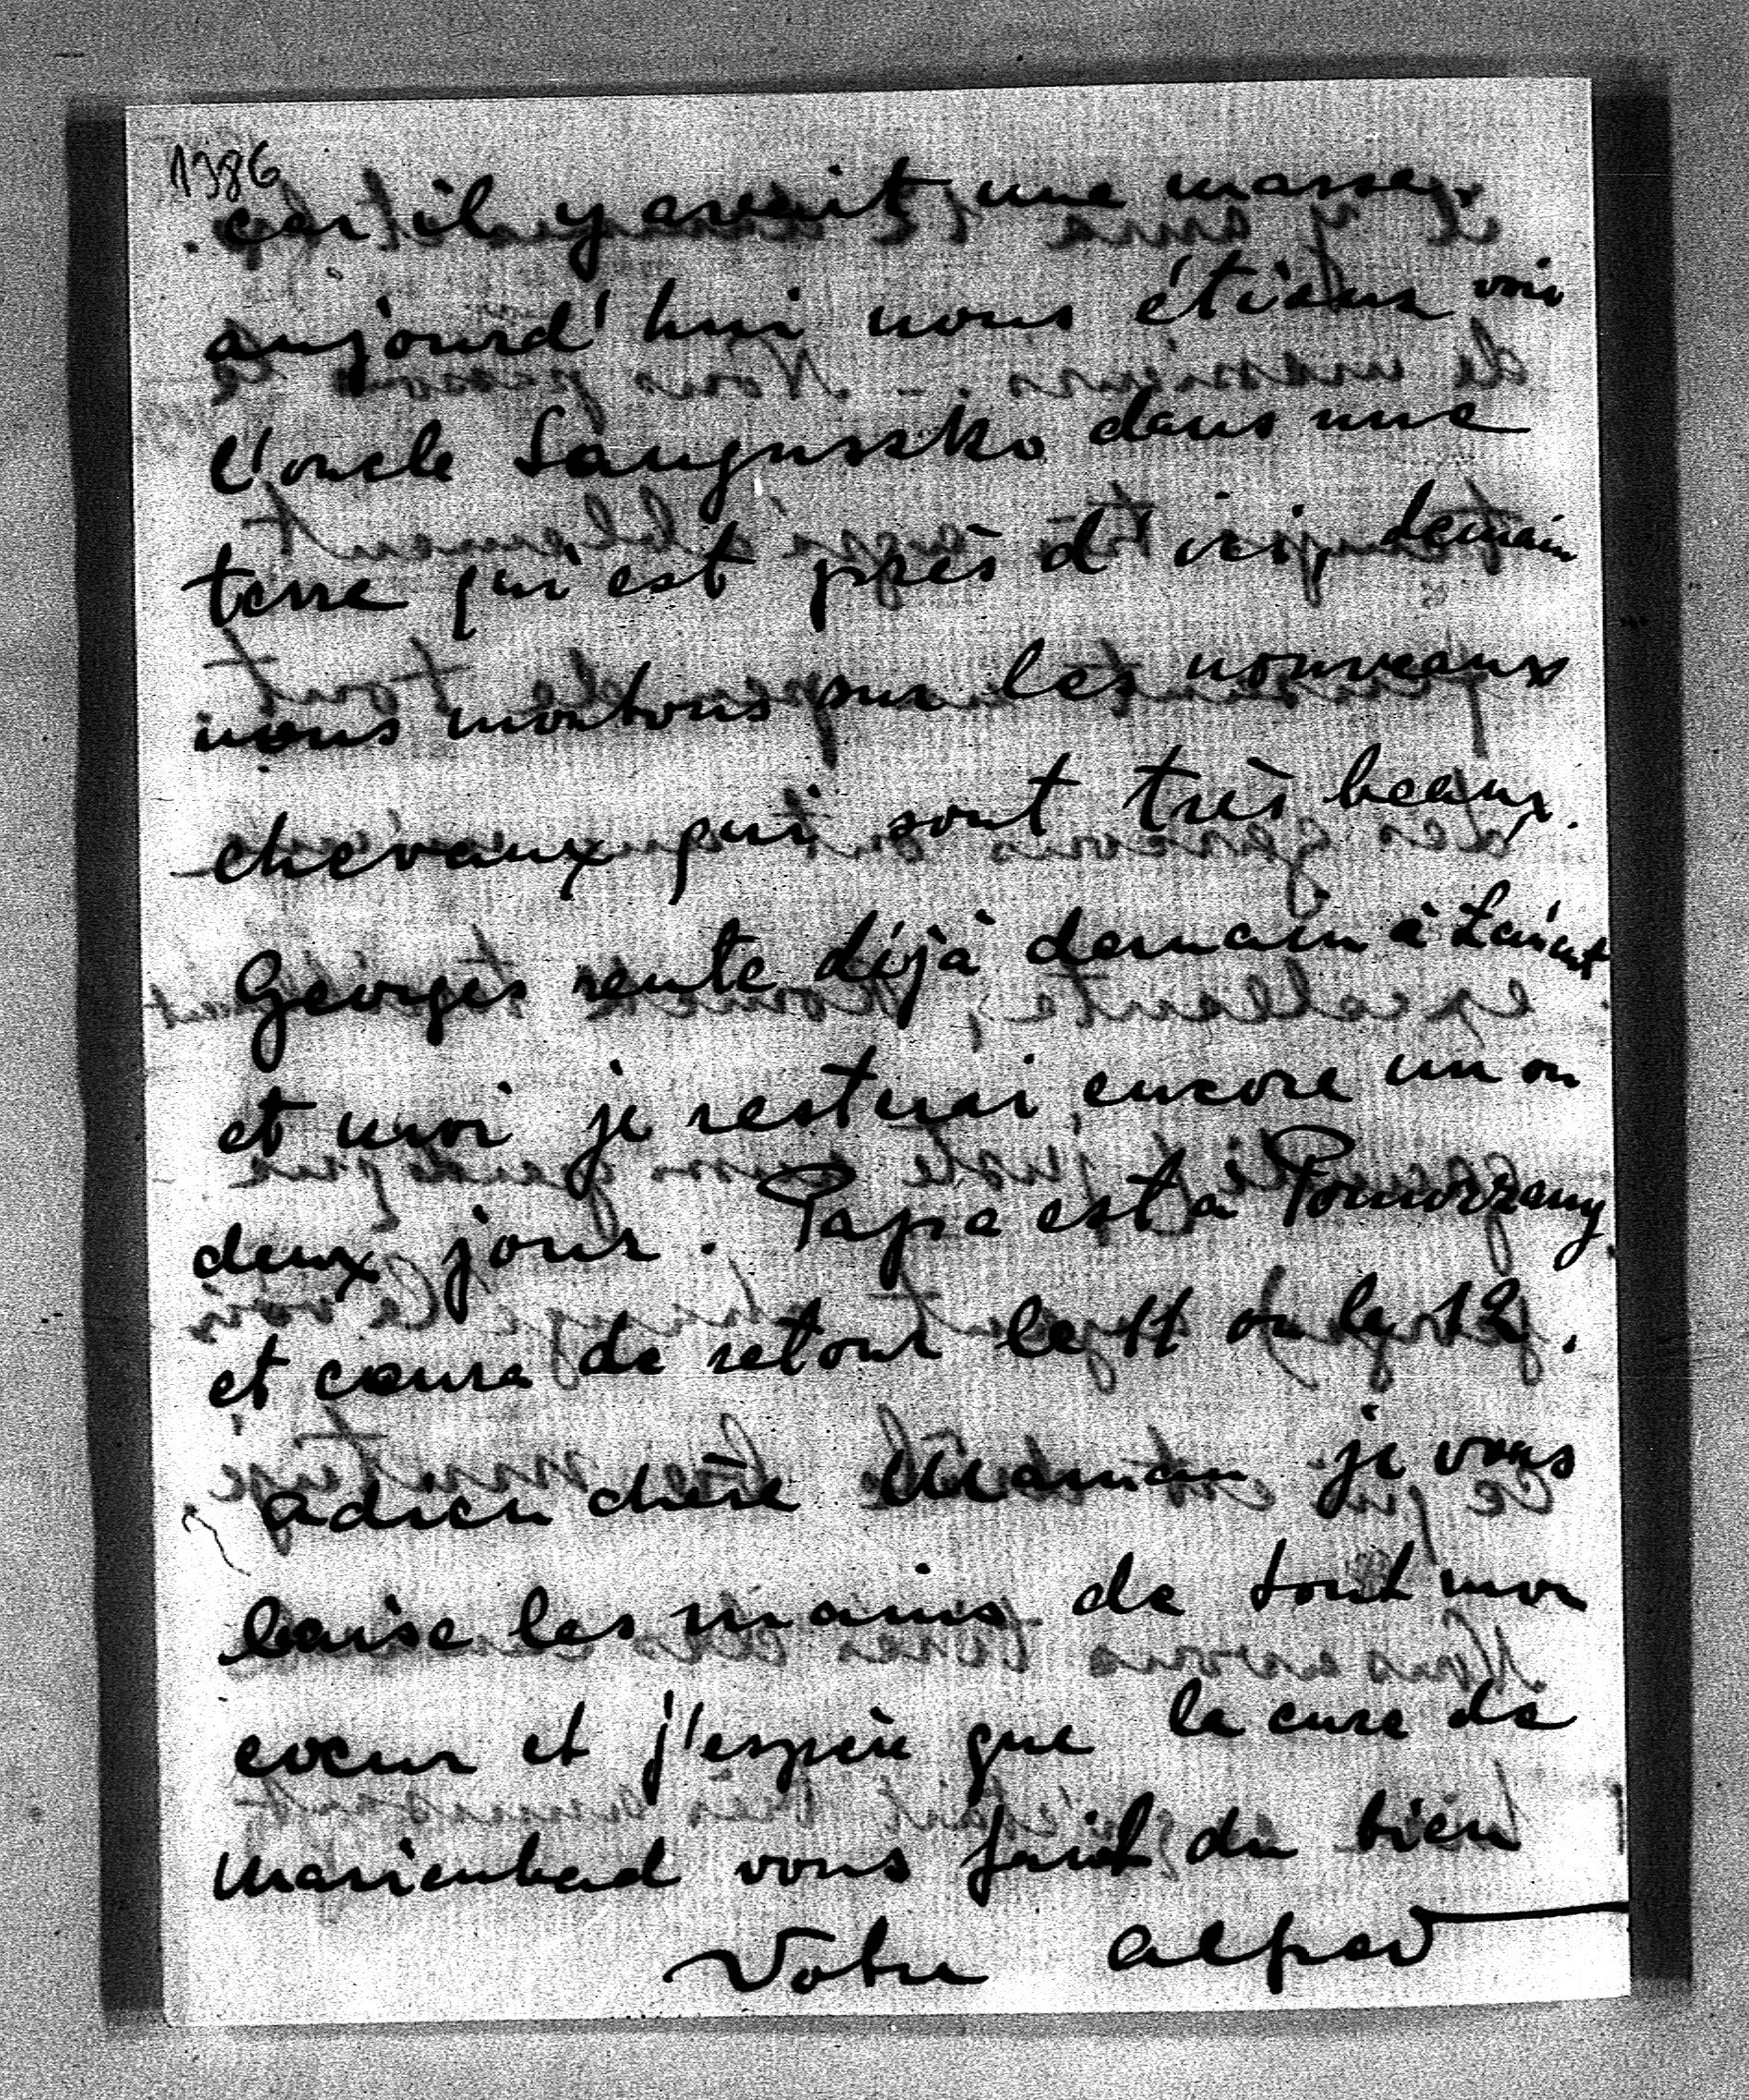 1386
car il y avait une masse,
aujourd'hui nous étions voir
l'oncle Sanguszko dans une
terre qui est près d'ici, demain
nous montons sur les nouveaux
chevaux qui sont très beaux.
Georges rentre déjà demain à Łańcut
et moi je resterai encore un ou
deux jour. Papa est à Pomorzany
et sera de retour le 11 ou le 12.
adieu chère Maman je vous
baise les mains de tout mon
coeur et j'espère que la cure de
Marienbad vous fait du bien
Votre Alfred